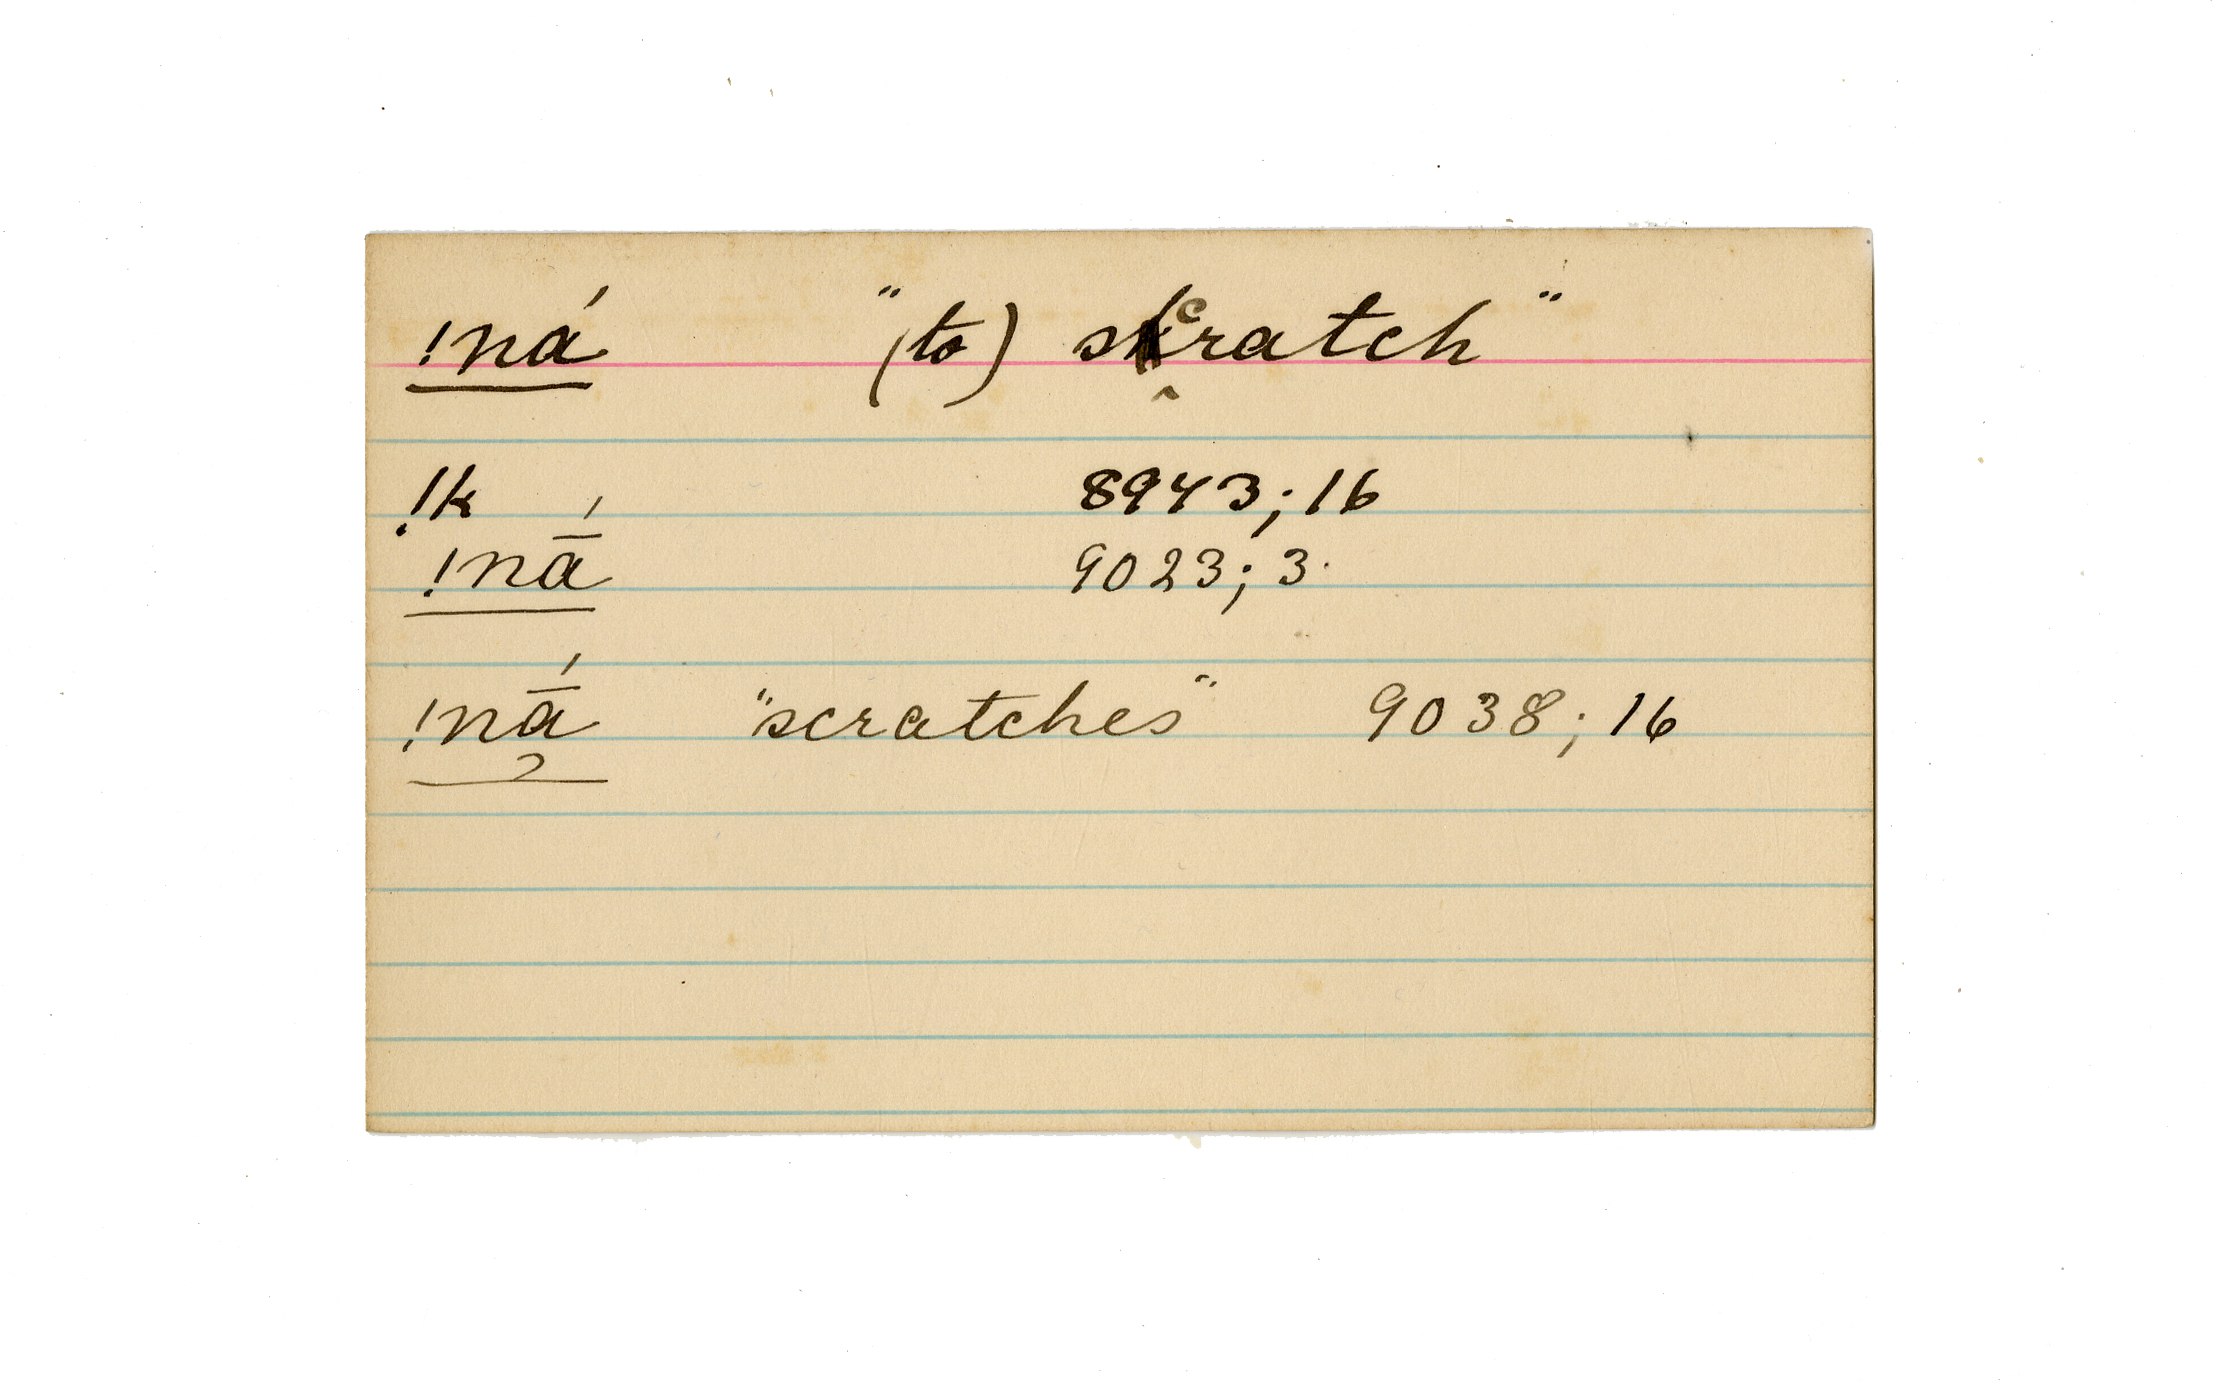 !ná "(to) scratch"
!k 8943; 16
!nā́ 9023; 3.
!nā́ "scratches" 9038; 16